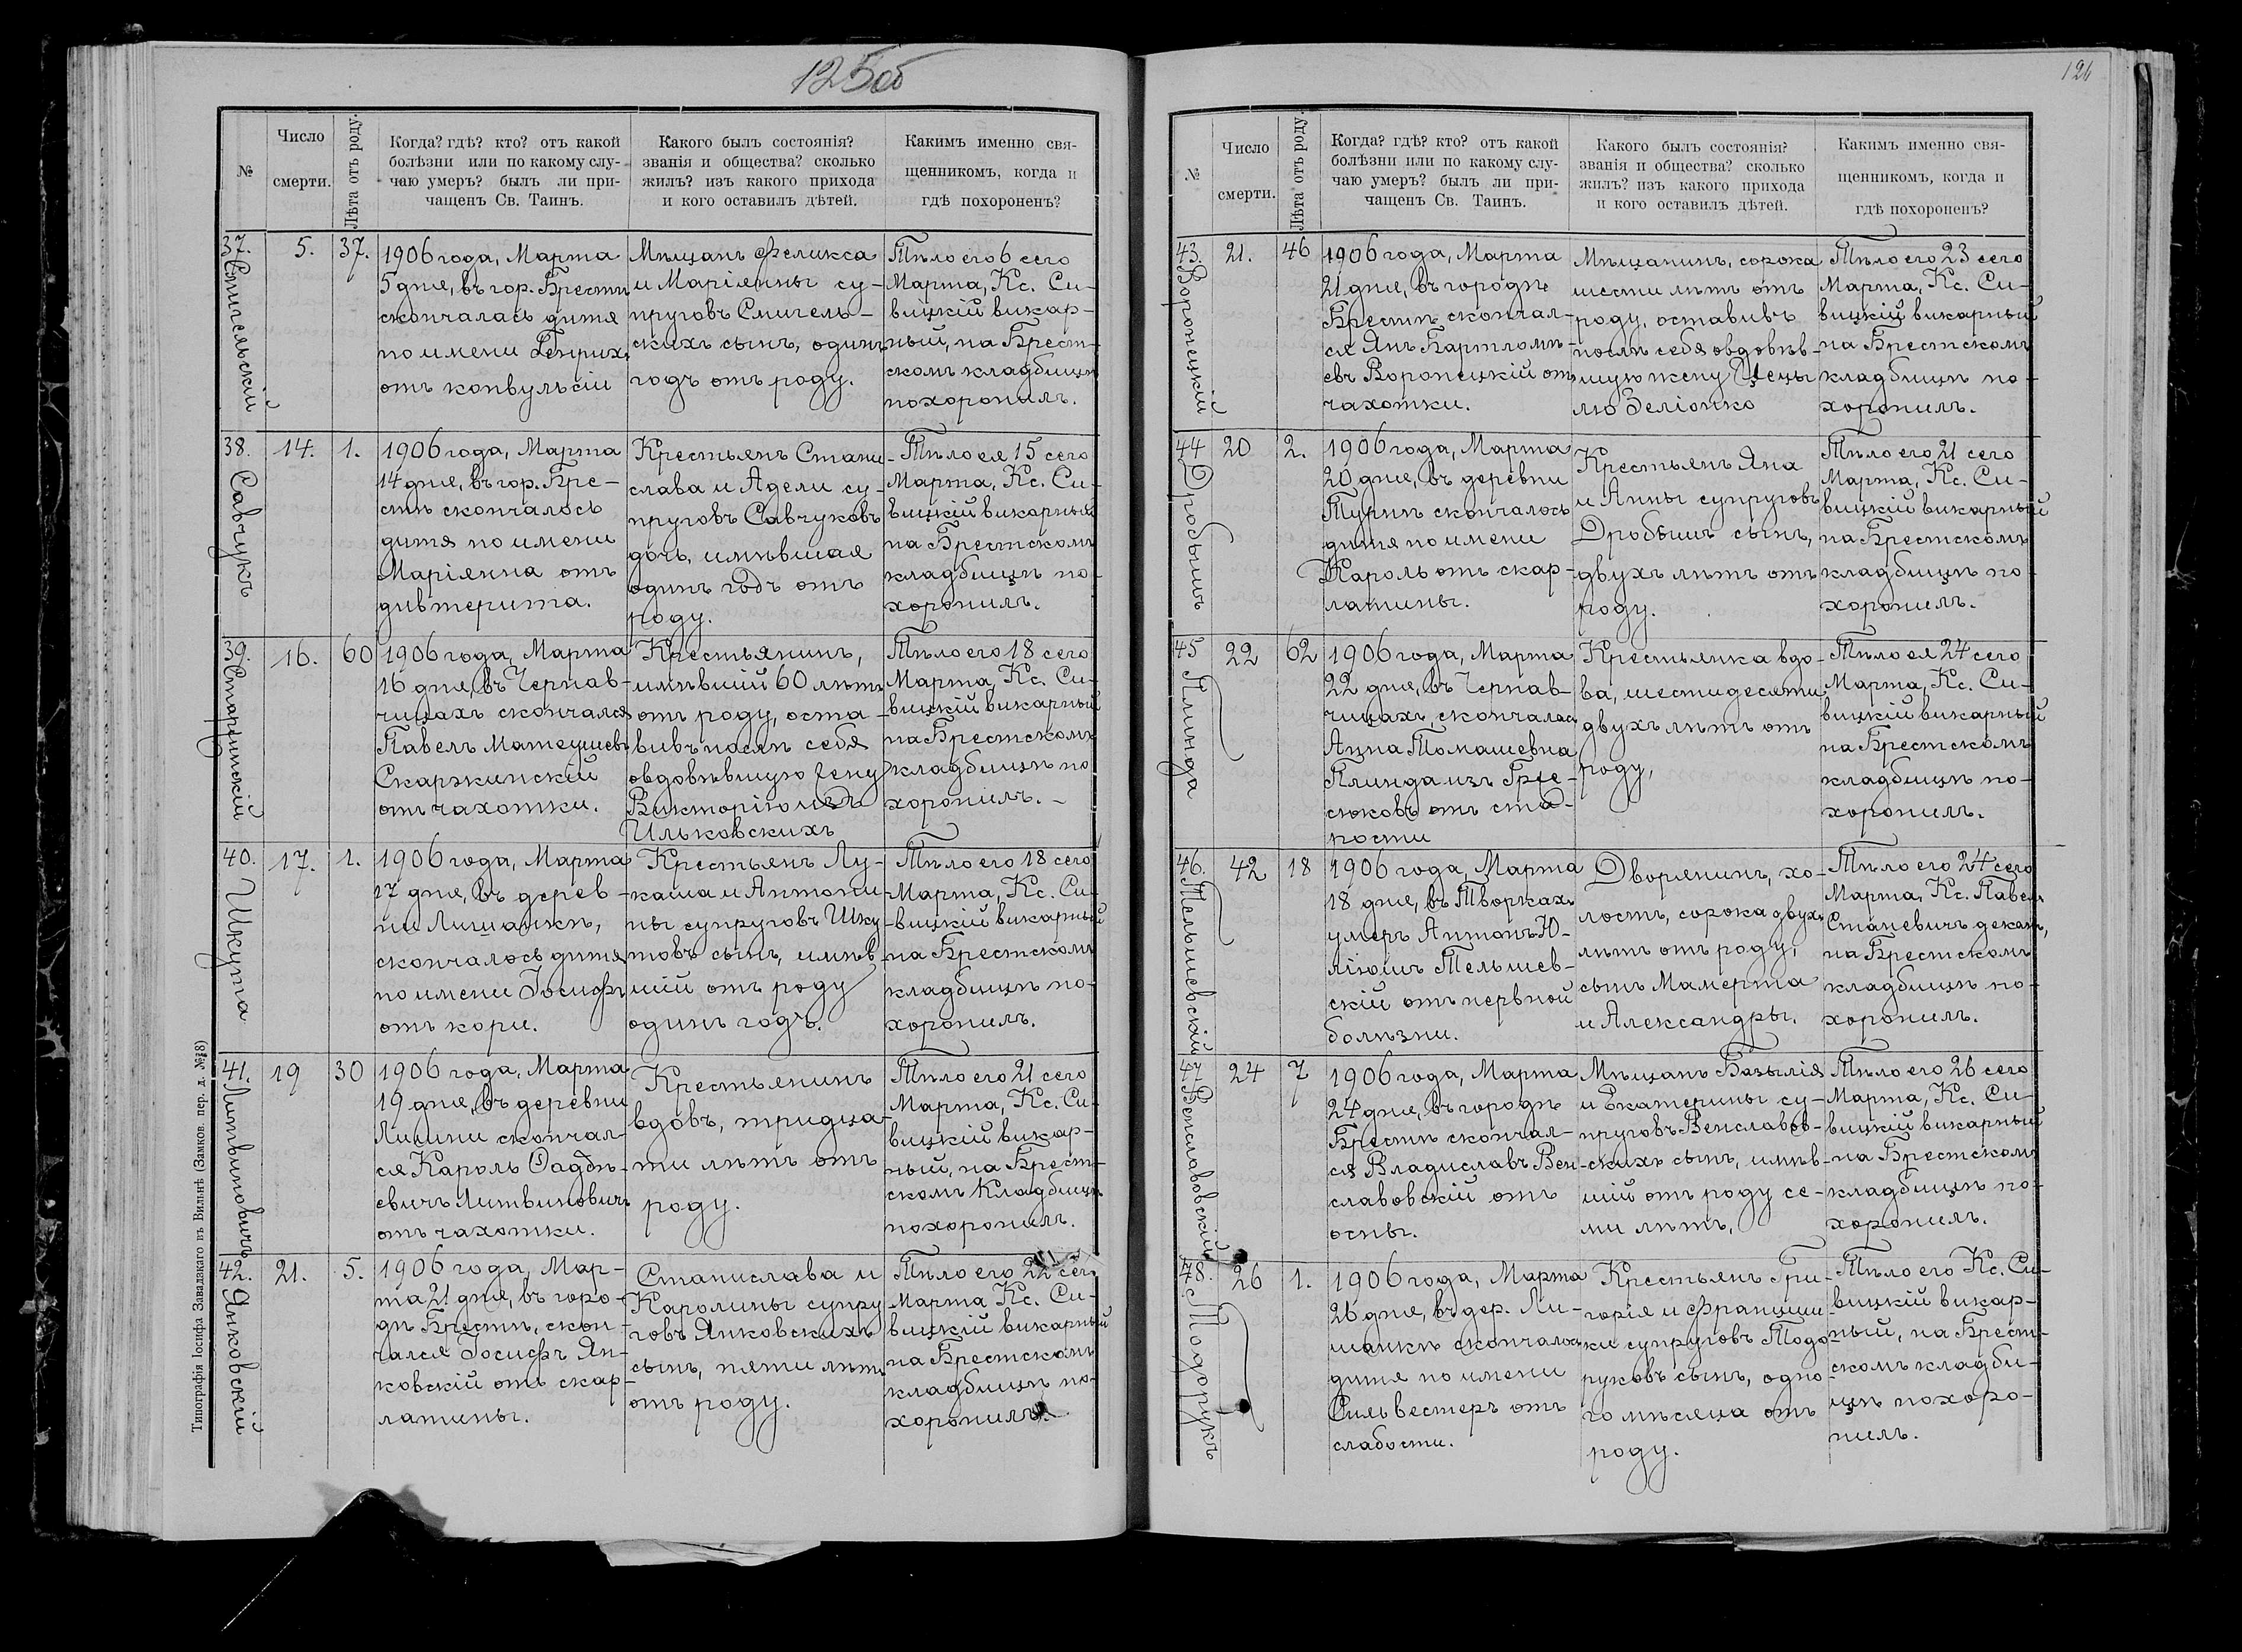 125об
№
Число
смерти.
Лѣта отъ роду.
Когда? гдѣ? кто? отъ какой
болѣзни или по какому слу-
чаю умеръ? былъ ли при-
чащенъ Св. Таинъ.
Какого былъ состоянія?
званія и общества? сколько
жилъ? изъ какого прихода
и кого оставилъ дѣтей.
Какимъ именно свя-
щенникомъ, когда и
гдѣ похороненъ?
37.
Смигельскій
5.
37.
1906 года, Марта
5 дня, въ гор. Брестѣ
скончалась дитя
по имени Генрихъ
отъ конвульсіи
Мѣщанъ Феликса
и Маріянны су-
пруговъ Смигель-
скихъ сынъ, одинъ
годъ отъ роду.
Тѣло его 6 сего
Марта, Кс. Си-
вицкій викар-
ный, на Брест-
скомъ кладбищѣ
похоронилъ.
38.
Савчукъ
14.
1.
1906 года, Марта
14 дня, въ гор. Бре-
стѣ скончалось
дитя по имени
Маріянна отъ
дивтерита.
Крестьянъ Стани-
слава и Адели су-
пруговъ Савчуковъ
дочь, имѣвшая
одинъ годъ отъ
роду.
Тѣло ея 15 сего
Марта, Кс. Си-
вицкій викарный
на Брестскомъ
кладбищѣ по-
хоронилъ.
39.
16.
60
1906 года, Марта
16 дня, въ Чернав-
чицахъ скончался
Павелъ Матеушевъ
Скаржинскій
отъ чахотки.
Крестьянинъ,
имѣвшій 60 лѣтъ
отъ роду, оста-
вивъ послѣ себя
овдовѣвшую жену
Викторію изъ
Ильковскихъ
Тѣло его 18 сего
Марта, Кс. Си-
вицкій викарный
на Брестскомъ
кладбищѣ по
хоронилъ. -
40.
Шкута
17.
1.
1906 года, Марта
17 дня, въ дерев-
ни Лищанкѣ,
скончалось дитя
по имени Іосифъ
отъ кори.
Крестьянъ Лу-
каша и Антони-
ны супруговъ Шку
товъ сынъ, имѣв-
шій отъ роду
одинъ годъ.
Тѣло его 18 сего
Марта, Кс. Си-
вицкій викарный
на Брестскомъ
кладбищѣ по-
хоронилъ.
41.
Литвиновичъ
19
30
1906 года, Марта
19 дня, въ деревни
скончал-
ся Кароль Фадѣ-
евичъ Литвиновичъ
отъ чахотки.
Крестьянинъ
вдовъ, тридца-
ти лѣтъ отъ
роду.
Тѣло его 21 сего
Марта, Кс. Си-
вицкій викар-
ный, на Брест-
скомъ Кладбищѣ
похоронилъ.
42.
Янковскій
21.
5.
1906 года, Мар-
та 21 дня, въ горо-
дѣ Брестѣ, скон-
чался Іосифъ Ян-
ковскій отъ скар-
латины.
Станислава и
Каролины супру
говъ Янковскихъ
сынъ, пяти лѣтъ
отъ роду.
Тѣло его 22 сего
Марта Кс. Си-
вицкій викарный
на Брестскомъ
кладбищѣ по-
хоронилъ.
Типографія Іосифа Завадзкаго въ Вильнѣ (Замков. пер. д. № 8)
126
№
Число
смерти.
Лѣта отъ роду.
Когда? гдѣ? кто? отъ какой
болѣзни или по какому слу-
чаю умеръ? былъ ли при-
чащенъ Св. Таинъ.
Какого былъ состоянія?
званія и общества? сколько
жилъ? изъ какого прихода
и кого оставилъ дѣтей.
Какимъ именно свя-
щенникомъ, когда и
гдѣ похороненъ?
43.
Воронецкій
21.
46
1906 года, Марта
21 дня, въ городѣ
Брестѣ скончал-
ся Янъ Бартломѣ-
евъ Воронецкій отъ
чахотки.
Мѣщанинъ, сорока
шести лѣтъ отъ
роду, оставивъ
послѣ себя овдовѣв-
шую жену Цецы
лю Зеліонко
Тѣло его 23 сего
Марта, Кс. Си-
вицкій викарный
на Брестскомъ
кладбищѣ по-
хоронилъ.
44
Дробышъ
20
2.
1906 года, Марта
20 дня, въ деревни
Туринѣ скончалось
дитя по имени
Кароль отъ скар-
латины.
Крестьянъ Яна
и Анны супруговъ
Дробышъ сынъ,
двухъ лѣтъ отъ
роду.
Тѣло его 21 сего
Марта, Кс. Си-
вицкій викарный
на Брестскомъ
кладбищѣ по-
хоронилъ.
45
Плинда
22
62
1906 года, Марта
22 дня, въ Чернав-
чицахъ, скончалась
Анна Томашевна
Плинда изъ
отъ ста-
рости
Крестьянка вдо-
ва, шестидесяти
двухъ лѣтъ отъ
роду,
Тѣло ея 24 сего
Марта, Кс. Си-
вицкій викарный
на Брестскомъ
кладбищѣ по-
хоронилъ.
46.
Тельшевскій
42
18
1906 года, Марта
18 дня, въ Творкахъ
умеръ Антонъ Ю-
ліюшъ Тельшев-
скій отъ нервной
болѣзни.
Дворянинъ, хо-
лостъ, сорока двухъ
лѣтъ отъ роду,
сынъ Мамерта
и Александры.
Тѣло его 24 сего
Марта, Кс. Павелъ
Станевичъ деканъ,
на Брестскомъ
кладбищѣ по-
хоронилъ.
47
Венславовскій
24
7
1906 года, Марта
24 дня, въ городѣ
Брестѣ скончал-
ся Владиславъ Вен-
славовскій отъ
оспы.
Мѣщанъ Базылія
и Екатерины су-
пруговъ Венславов-
скихъ сынъ, имѣв-
шій отъ роду се-
ми лѣтъ,
Тѣло его 26 сего
Марта, Кс. Си-
вицкій викарный
на Брестскомъ
кладбищѣ по-
хоронилъ.
48.
Тодорукъ
26
1.
1906 года, Марта
26 дня, въ дер. Ли-
шанкѣ скончалось
дитя по имени
Сильвестеръ отъ
слабости.
Крестьянъ Гри-
горія и Францишки
ки супруговъ Тодо-
руковъ сынъ, одно
го мѣсяца отъ
роду.
Тѣло его Кс. Си-
вицкій викар-
ный, на Брест-
скомъ кладби-
щѣ похоро-
нилъ.